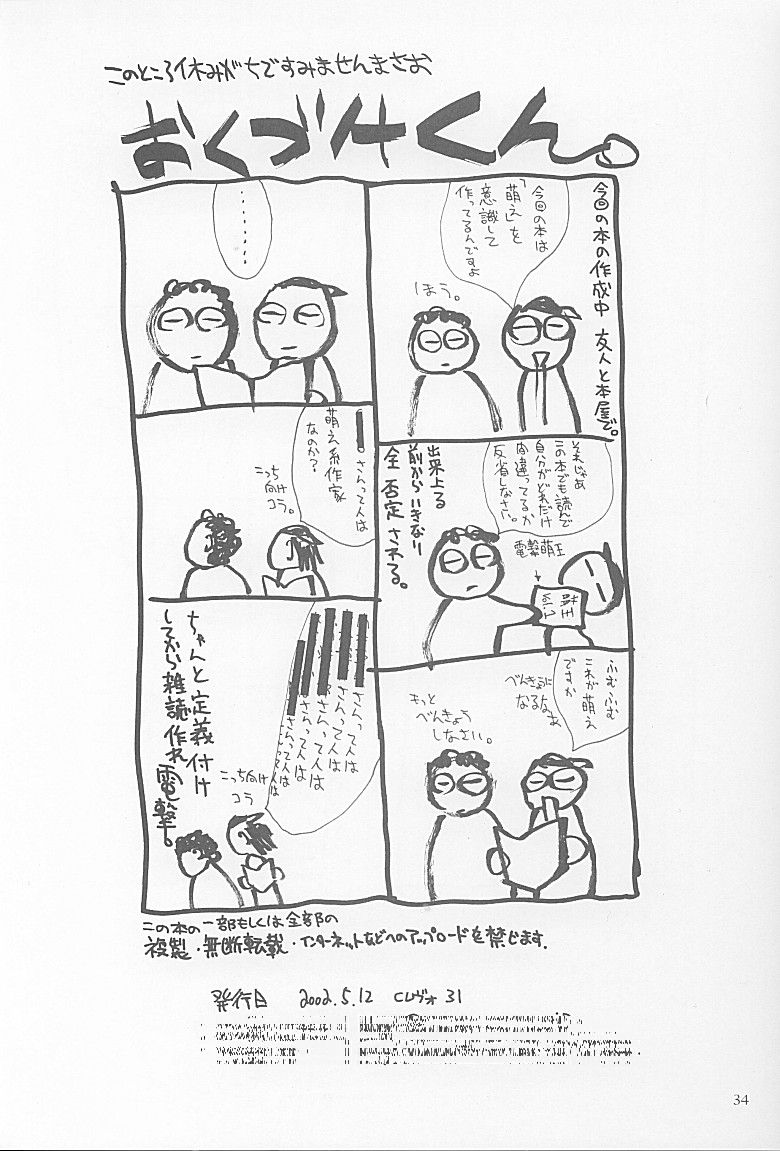 このところ休みがちですみませんまさお
おくづけくん。
今回の本の作成中 友人と本屋で。
今回の本は
「萌え」を
意識して
作ってるんですよ
ほう。
そんじゃあ
この本でも読んで
自分がどれだけ
間違ってるか
反省しなさい。
電撃萌王
出来上る
前からいきなり
全否定される。
ふむふむ
これが萌え
ですか
べんきょうに
なるなぁ
もっと
べんきょう
しなさい。
………
さんって人は
萌え系作家
なのか?
こっち
向け
コラ。
さんって人は
さんって人は
さんって人は
さんって人は
さんって人は
こっち向け
コラ
ちゃんと定義付け
してから雑誌作れ
電撃。
この本の一部もしくは全部の
複製・無断転載・インターネットなどへのアップロードを禁じます.
発行日 2002.5.12 CLヴォ31
34